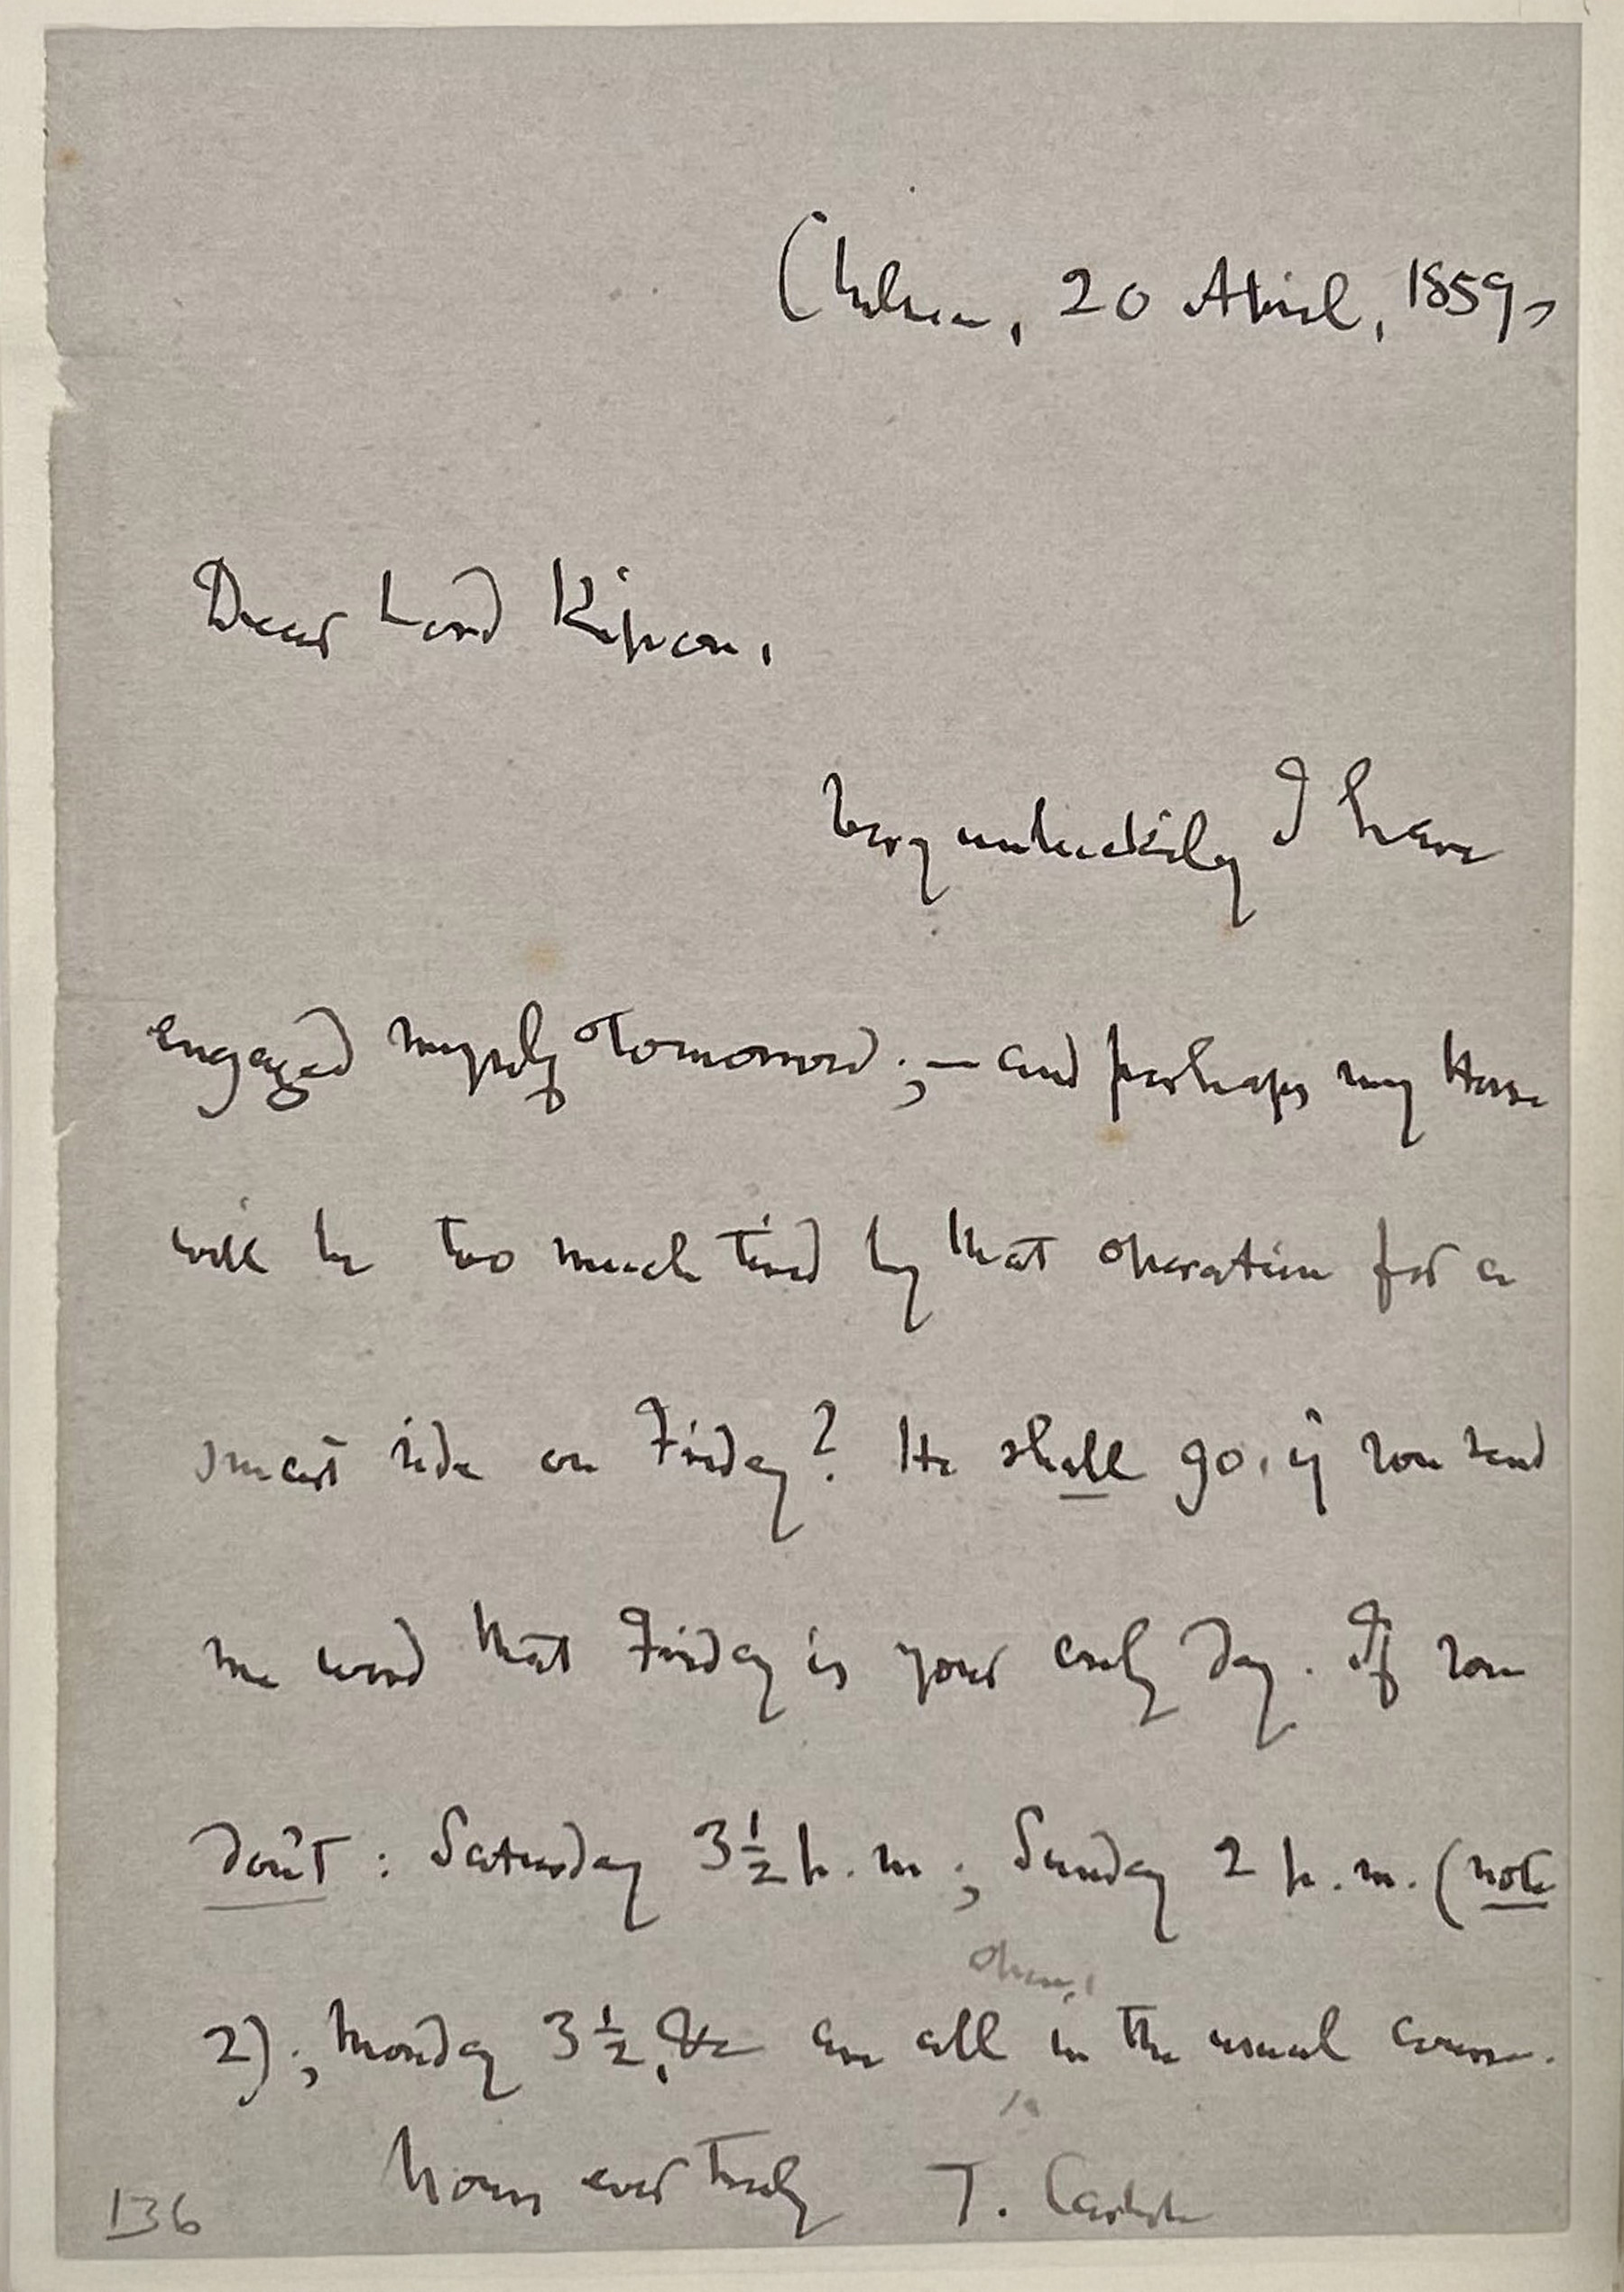 Chelsea, 20 April, 1859,
Dear Lord Ripon,
Very unluckily I have
engaged myself Tomorrow; — and perhaps my Horse
will be too much tired by that operation for a
smart ride on Friday? He shall go, if you send
me word that Friday is your only day. If you
don't: Saturday 3½ p.m; Sunday 2 p.m. (note
2); Monday 3½, &c are all open, in the usual course.
Yours ever truly T. Carlyle
136